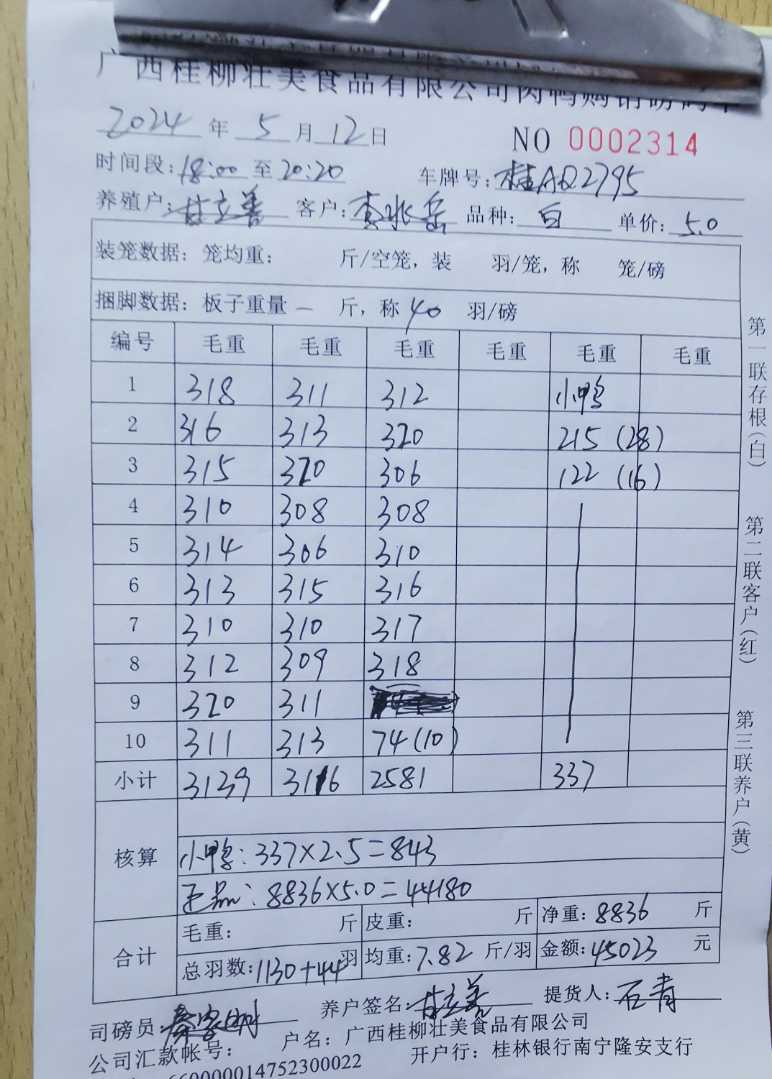 广西桂柳壮美食品有限公司肉鸭购销磅码单
2024 年 5 月 12 日 NO 0002314
时间段: 18:00 至 20:20 车牌号: 桂AQ2795
养殖户: 甘立善 客户: 李兆岳 品种: 白 单价: 5.0
装笼数据: 笼均重: 斤/空笼, 装 羽/笼, 称 笼/磅
捆脚数据: 板子重量 — 斤, 称 40 羽/磅
编号 毛重 毛重 毛重 毛重 毛重 毛重
1 318 311 312 小鸭
2 316 313 320 215 (28)
3 315 320 306 122 (16)
4 310 308 308
5 314 306 310
6 313 315 316
7 310 310 317
8 312 309 318
9 320 311
10 311 313 74 (10)
小计 3139 3116 2581 337
核算
小鸭: 337×2.5=843
正品: 8836×5.0=44180
合计
毛重: 斤 皮重: 斤 净重: 8836 斤
总羽数: 1130+44 羽 均重: 7.82 斤/羽 金额: 45023 元
司磅员 养户签名: 甘立善 提货人: 石青
公司汇款帐号: 户名: 广西桂柳壮美食品有限公司
660000014752300022 开户行: 桂林银行南宁隆安支行
第一联存根(白)
第二联客户(红)
第三联养户(黄)